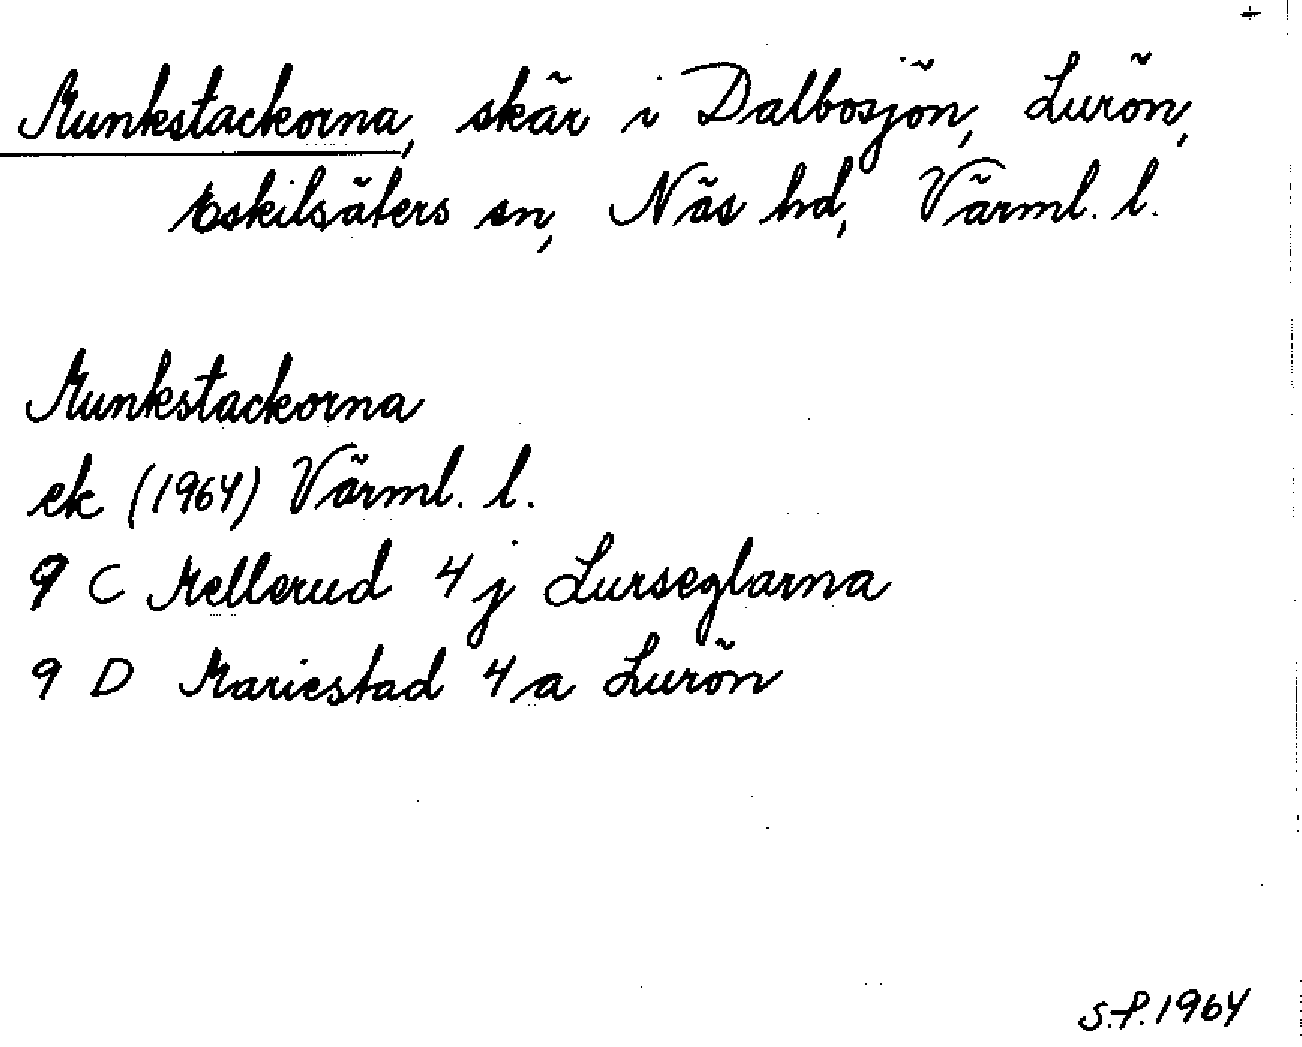 Munkstackorna, skär i Dalbosjön, Lurön,
Eskilsäters sn, Näs hd, Värml. l.
Munkstackorna
ek (1964) Värml. l.
9 C Mellerud 4j Lurseglarna
9 D Mariestad 4a Lurön
S.-P. 1964